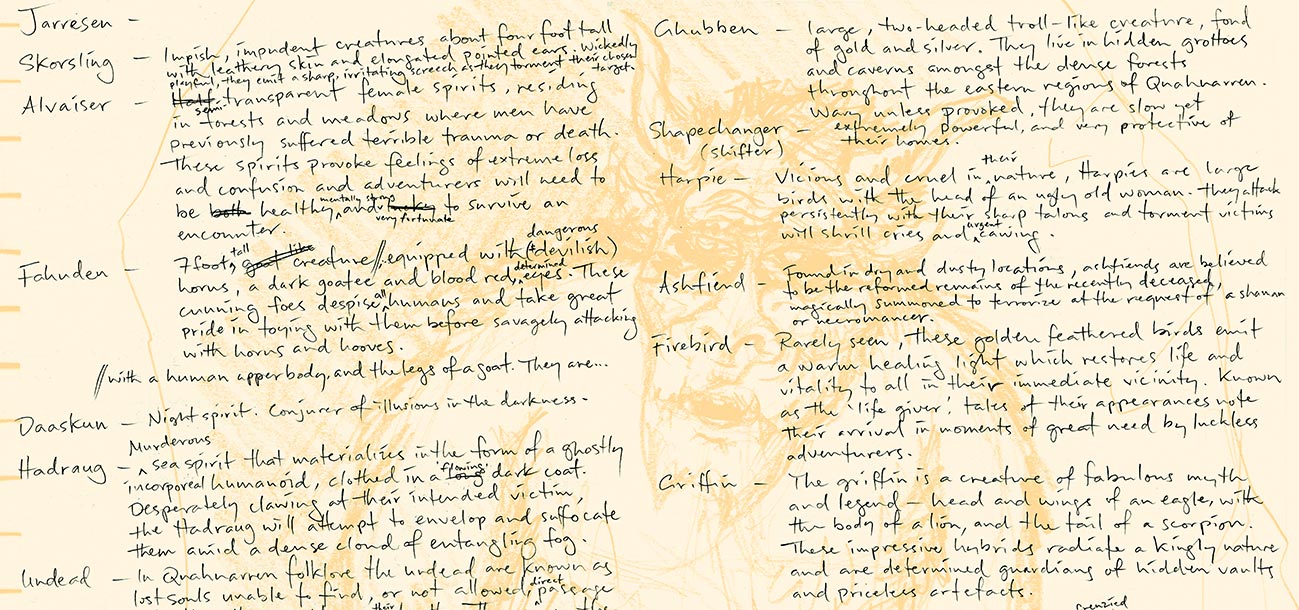 Jarresen –
Skorsling – Impish, impudent creatures about four foot tall
with leathery skin and elongated pointed ears. Wickedly
playful, they emit a sharp, irritating screech as they torment their chosen
target.
Alvaiser – Half semi-transparent female spirits, residing
in forests and meadows where men have
previously suffered terrible trauma or death.
These spirits provoke feelings of extreme loss
and confusion and adventurers will need to
be both healthy, mentally strong and lucky very fortunate to survive an
encounter.
Fahnden – 7 foot, tall goat like creature // equipped with dangerous (+ devilish)
horns, a dark goatee and blood red, determined eyes. These
cunning foes despise all humans and take great
pride in toying with them before savagely attacking
with horns and hooves.
// with a human apper body, and the legs of a goat. They are...
Daaskun – Night spirit. Conjurer of illusions in the darkness.
Hadraug – Murderous sea spirit that materializes in the form of a ghostly
incorporeal humanoid, clothed in a long 'flowing' dark coat.
Desperately clawing at their intended victim,
the Hadraug will attempt to envelop and suffocate
them amid a dense cloud of entangling fog.
Undead – In Quahnarren folklore the undead are known as
lost souls unable to find, or not allowed, direct passage
their
Ghubben – large, two-headed troll-like creature, fond
of gold and silver. They live in hidden grottoes
and caverns amongst the dense forests
throughout the eastern regions of Quahnarren.
Wary unless provoked, they are slow yet
extremely powerful, and very protective of
their homes.
Shapechanger –
(shifter)
Harpie – Vicious and cruel in their nature, Harpies are large
birds with the head of an ugly old woman. They attack
persistently with their sharp talons and torment victims
will shrill cries and urgent cawing.
Ashfiend – Found in dry and dusty locations, ashfiends are believed
to be the reformed remains of the recently deceased,
magically summoned to terrorize at the request of a shaman
or necromancer.
Firebird – Rarely seen, these golden feathered birds emit
a warm healing light which restores life and
vitality to all in their immediate vicinity. Known
as the 'life giver', tales of their appearances note
their arrival in moments of great need by luckless
adventurers.
Griffin – The griffin is a creature of fabulous myth
and legend – head and wings of an eagle, with
the body of a lion, and the tail of a scorpion.
These impressive hybrids radiate a kingly nature
and are determined guardians of hidden vaults
and priceless artefacts.
frenzied